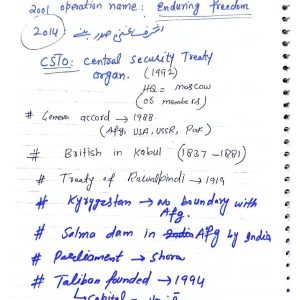 2001 operation name: Enduring freedom
2014:
CSTO: Central Security Treaty
organ. (1992)
HQ = moscow
(06 members)
# Geneva accord → 1988
(Afg, USA, USSR, Pak)
# British in Kabul (1837-1881)
# Treaty of Rawalpindi → 1919
# Kyrgyzstan → No boundary with
Afg.
# Salma dam in India Afg by India
# Parliament → Shora
# Taliban founded → 1994
↳ capital →